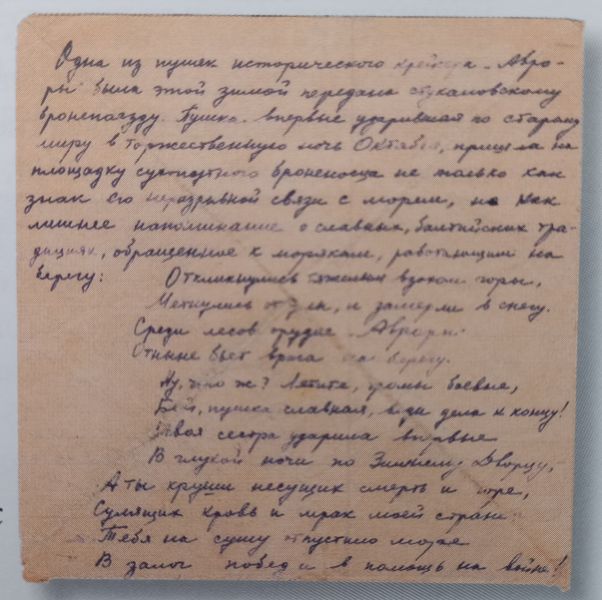 Одна из пушек исторического крейсера „Авро-
ры" была этой зимой передана стукаловскому
бронепоезду. Пушка, впервые ударившая по старому
миру в торжественную ночь Октября, пришла на
площадку сухопутного броненосца не только как
знак его неразрывной связи с морем, но и как
лишнее напоминание о славных, балтийских тра-
дициях, обращенное к морякам, работающим на
берегу:
Откликнулись тяжелым вздохом горы,
Метнулись и замерли в снегу.
Среди лесов орудие „Авроры"
Отныне бьет врага на берегу.
Ну, что ж? Летите, громы боевые,
Бей, пушка славная, веди дела к концу!
Твоя сестра ударила впервые
В глухой ночи по Зимнему Дворцу,
А ты круши несущих смерть и горе,
Сулящих кровь и мрак моей стране
Тебя на сушу отпустило море
В залог победы и в помощь на войне!